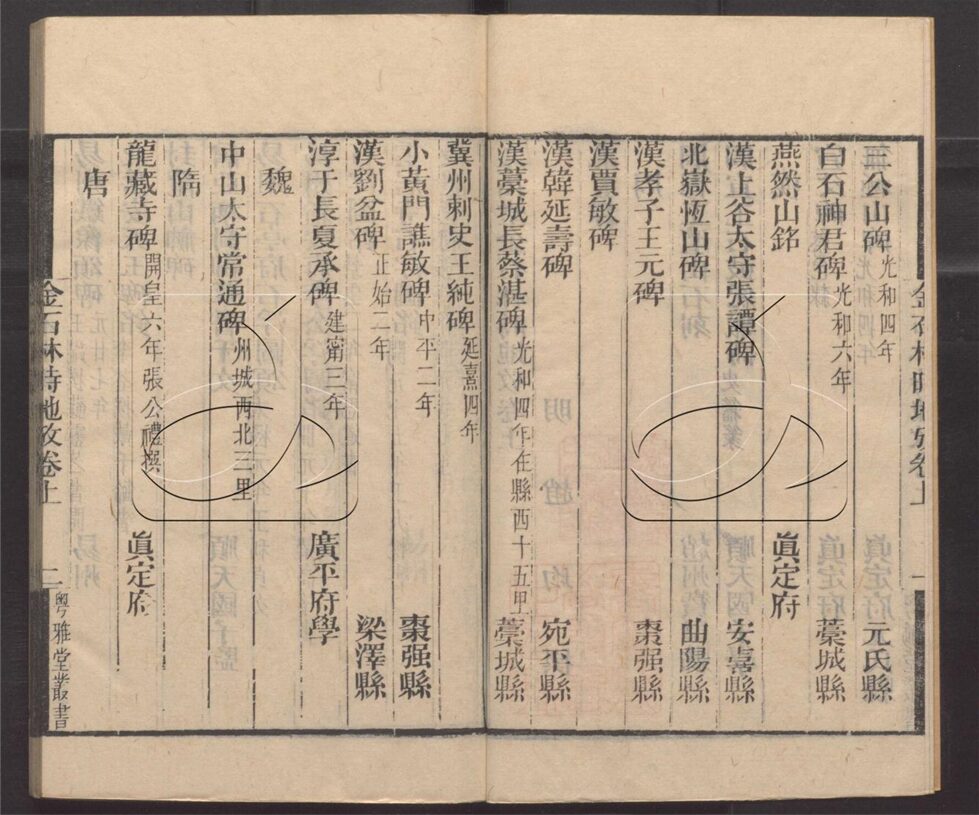 三公山碑光和四年 元氏縣
白石神君碑光和六年 藁城縣
燕然山銘 眞定府
漢上谷太守張譚碑 安喜縣
北嶽恆山碑 曲陽縣
漢孝子王元碑 棗强縣
漢賈敏碑
漢韓延壽碑 宛平縣
漢藁城長蔡湛碑光和四年在縣西十五里 藁城縣
冀州刺史王純碑延熹四年
小黃門譙敏碑中平二年 棗强縣
漢劉盆碑正始二年 梁澤縣
淳于長夏承碑建甯三年 廣平府學
魏
中山太守常通碑州城西北三里
隋
龍藏寺碑開皇六年張公禮撰 眞定府
唐
金石林時地攷卷上 二 粵雅堂叢書